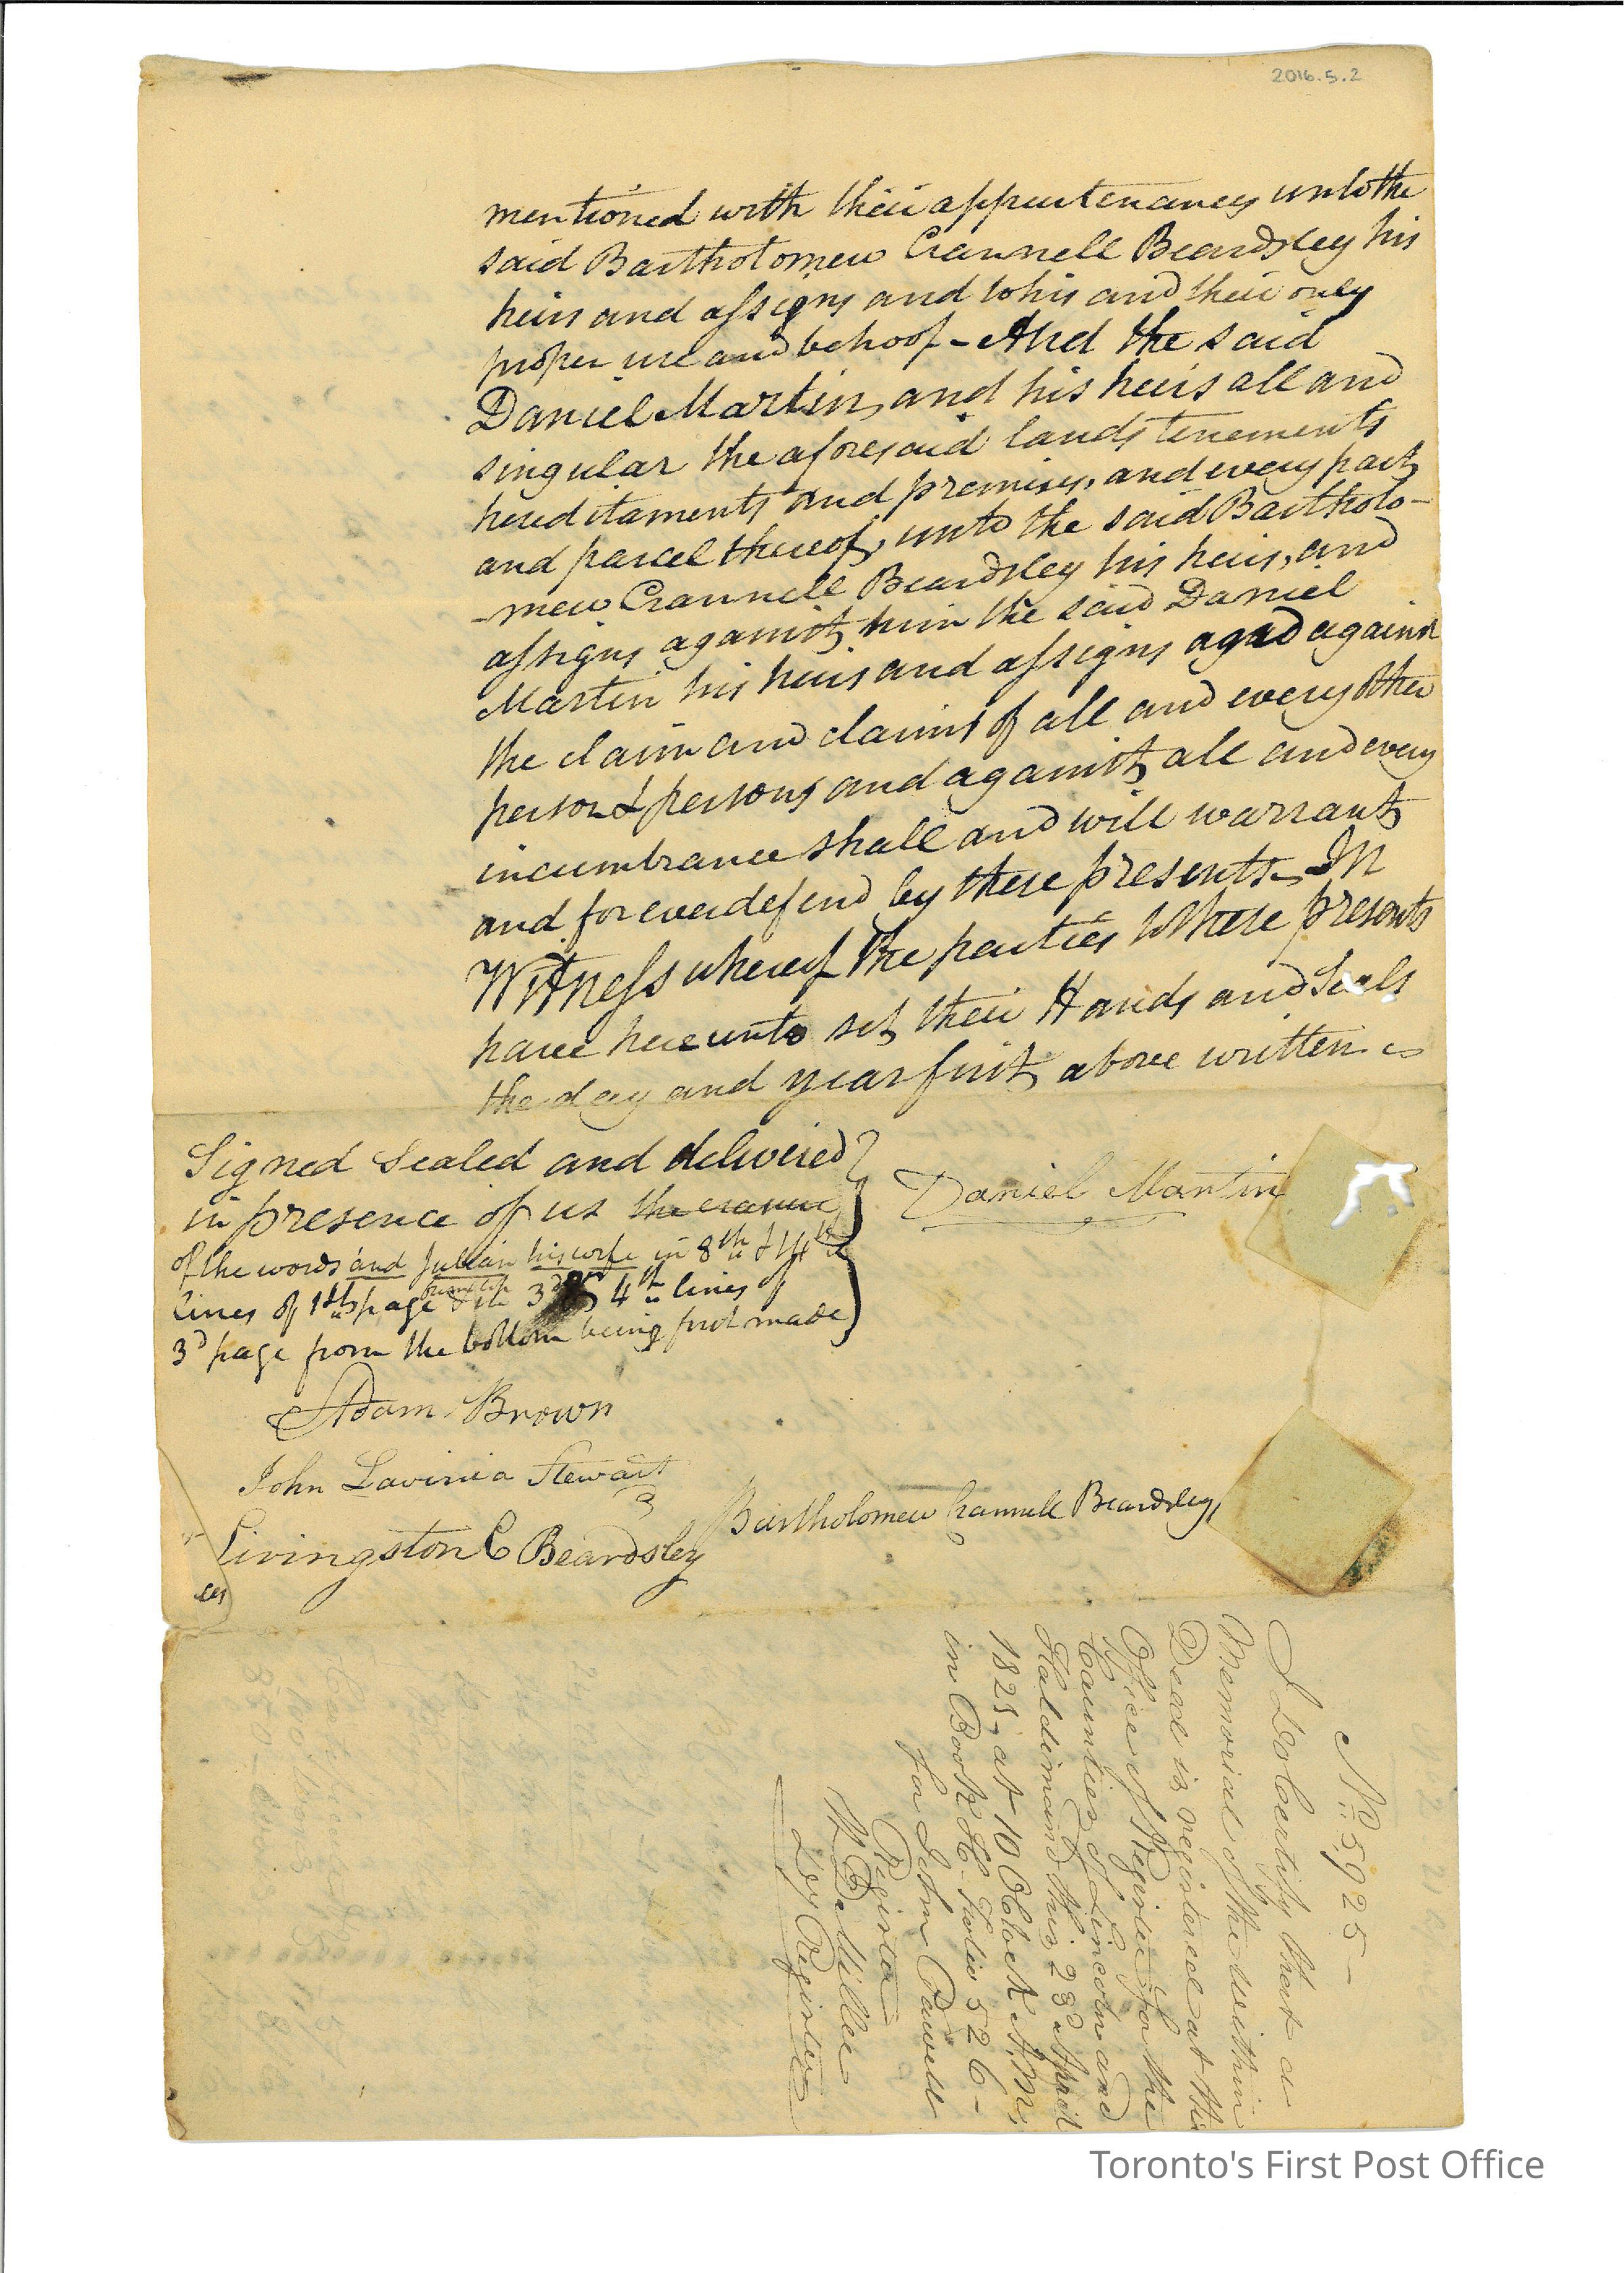 2016.5.2
mentioned with their appurtenances unto the
said Bartholomew Crannell Beardsley his
heirs and assigns and to his and their only
proper use and behoof - And the said
Daniel Martin, and his heirs all and
singular the aforesaid lands tenements
hereditaments and premises, and every part
and parcel thereof, unto the said Bartholo-
-mew Crannell Beardsley his heirs, and
assigns against him the said Daniel
Martin his heirs and assigns and against
the claim and claims of all and every other
person & persons and against all and every
incumbrance shall and will warrant
and forever defend by these presents - In
Witness whereof the parties to these presents
have hereunto set their Hands and Seals
the day and year first above written
Signed Sealed and delivered
in presence of us the erasure
of the words and Julian his wife in 8th & 14th
lines of 1st page & the 3d 4th lines of
3d page from the bottom being first made
Daniel Martin
Adam Brown
John Lavinia Stewart
Livingston C Beardsley
Bartholomew Crannell Beardsley
No 5925 -
I Do Certify that a
Memorial of the within
Deed is registered at the
Office of Register for the
Counties of Lincoln and
Haldimand this 23d April
1825, at 10 OClock A.M,
in Book H- Folio 526 -
for John Powell
Register
W D Miller
Dey Register
Toronto's First Post Office